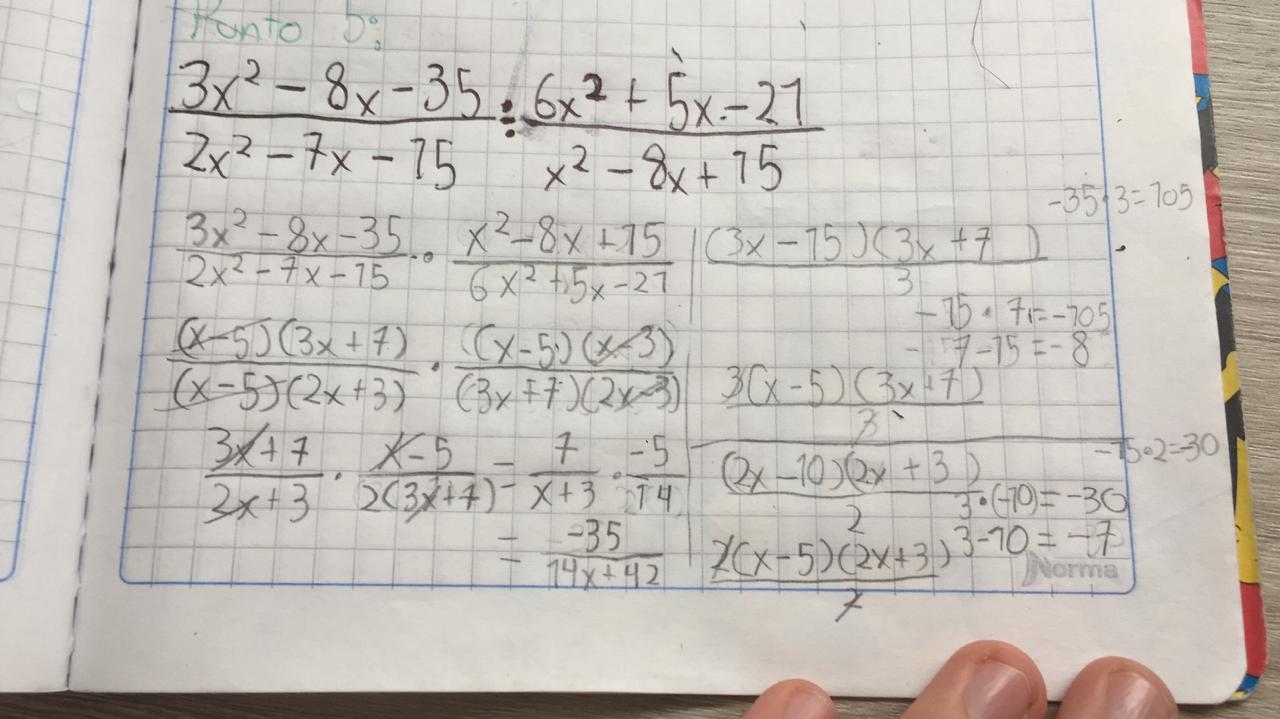 Punto 5:
3x² - 8x - 35 / 2x² - 7x - 15 ÷ 6x² + 5x - 21 / x² - 8x + 15
3x² - 8x - 35 / 2x² - 7x - 15 · x² - 8x + 15 / 6x² + 5x - 21
(x-5)(3x+7) / (x-5)(2x+3) · (x-5)(x-3) / (3x+7)(2x-3)
3x+7 / 2x+3 · x-5 / 2(3x+7) = 7 / x+3 · -5 / 14
= -35 / 14x+42
-35·3=105
(3x-15)(3x+7) / 3
-15·7=-105
7-15=-8
3(x-5)(3x+7) / 3
-15·2=-30
(2x-10)(2x+3) / 2
3·(-10)=-30
3-10=-7
2(x-5)(2x+3) / 2
Norma